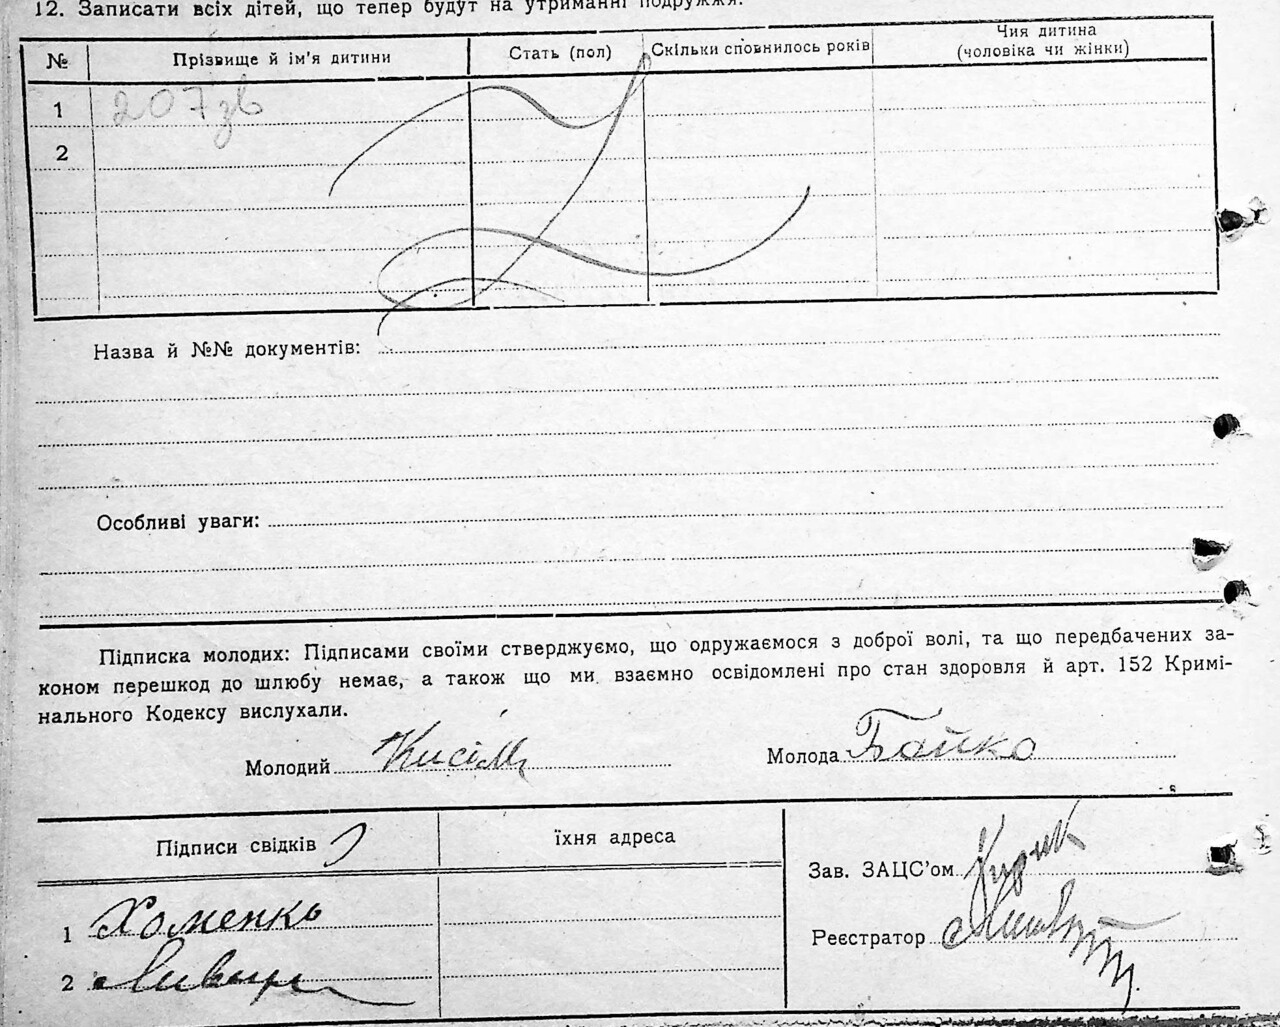 12. Записати всіх дітей, що тепер будут на утриманні подружжя.
№ Прізвище й ім'я дитини Стать (пол) Скільки сповнилось років Чия дитина (чоловіка чи жінки)
1 207зв
2
Назва й №№ документів:
Особливі уваги:
Підписка молодих: Підписами своїми стверджуємо, що одружаємося з доброї волі, та що передбачених за-
коном перешкод до шлюбу немає, а також що ми взаємно освідомлені про стан здоровля й арт. 152 Кримі-
нального Кодексу вислухали.
Молодий Кисіль Молода Бойко
Підписи свідків їхня адреса
Зав. ЗАЦС'ом
1 Хоменко
Реєстратор
2